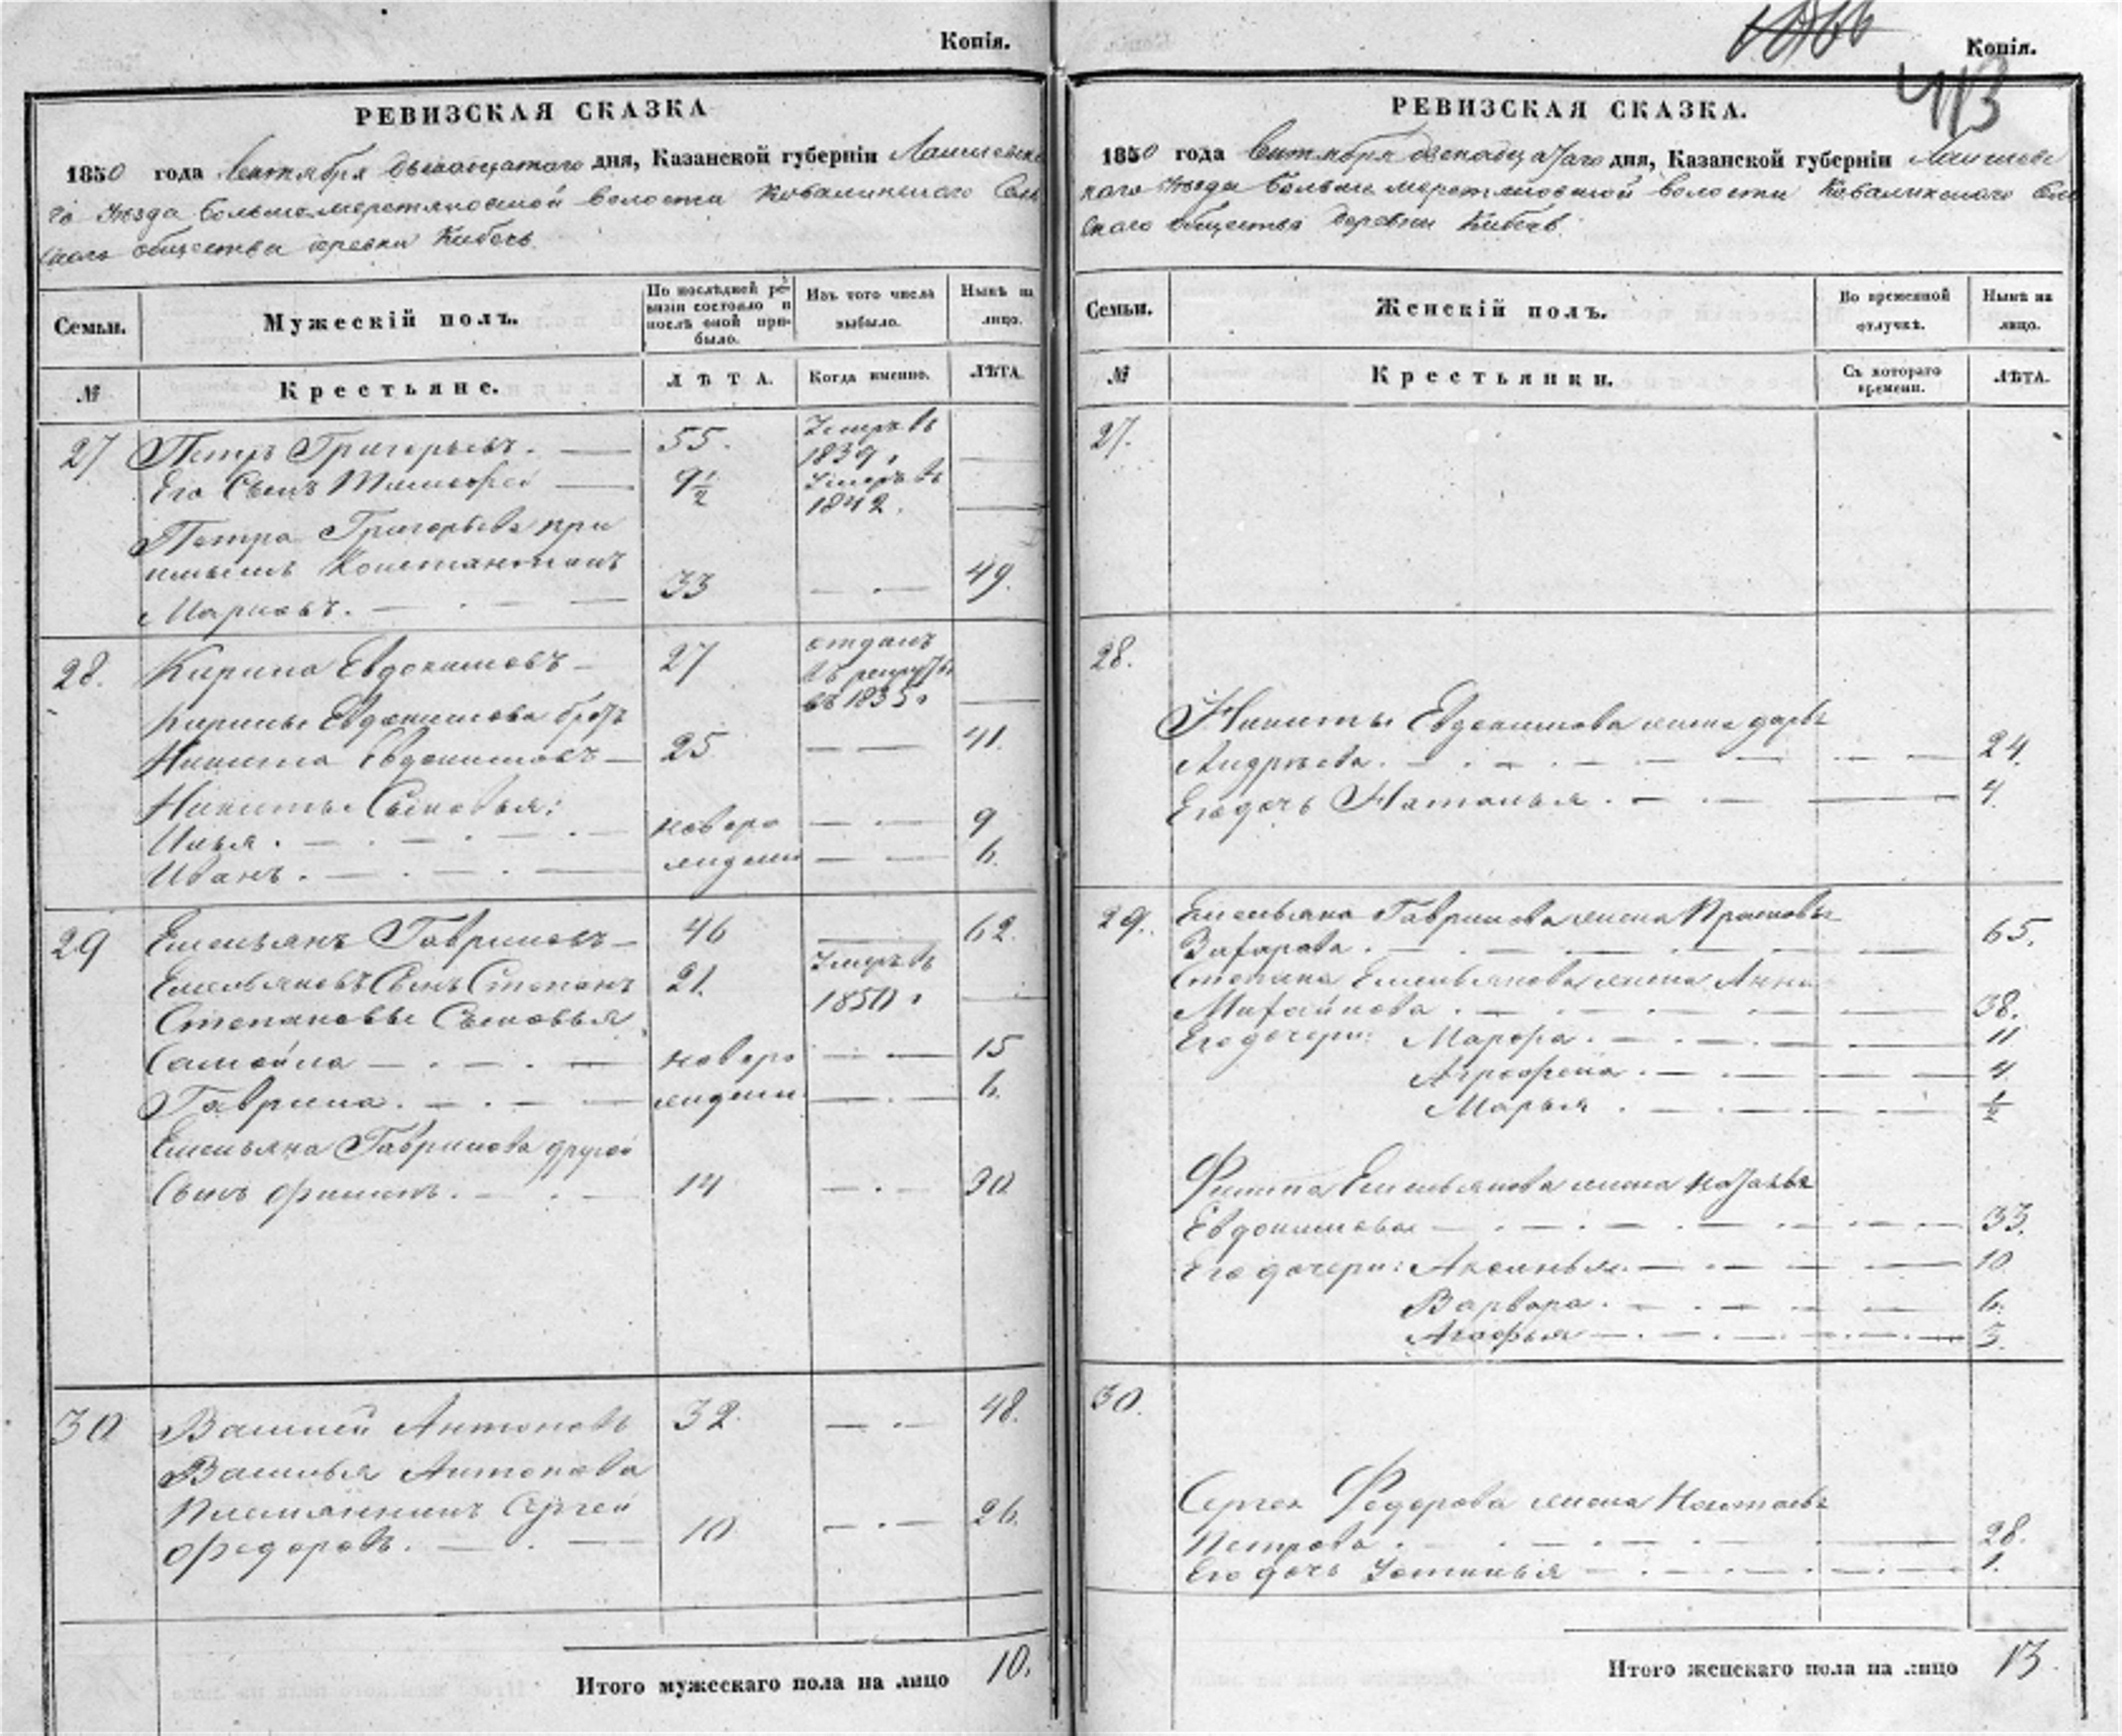 Копія.
РЕВИЗСКАЯ СКАЗКА
1850 года Сентября двенадцатаго дня, Казанской губерніи Лаишевска
го Уѣзда Большемеретяковской волости Ковалинскаго Сель
скаго общества деревни Кибечь
Семьи. Мужескій полъ. По послѣдней ре-визіи состояло и послѣ оной при-было. Изъ того числа выбыло. Нынѣ на лицо.
№ Крестьяне. ЛѢТА. Когда именно. ЛѢТА.
27 Петръ Григорьевъ. 55. Умеръ въ 1839.
Его Сынъ Тимофей 9½ Умеръ въ 1842.
Петра Григорьева при
имышъ Константинъ 33 49.
Марковъ.
28. Кирила Евдокимовъ 27 отданъ въ рекруты въ 1835.
Кирилы Евдокимова братъ
Никита Евдокимовъ 25 41.
Никиты Сыновья:
Илья. новоро 9
Иванъ. жденн 6.
29 Емельянъ Гавриловъ 46 62.
Емельяновъ Сынъ Степанъ 21. Умеръ въ 1850.
Степановы Сыновья
Самойла новоро 15
Гаврила. ждени 6.
Емельяна Гаврилова другой
Сынъ Филипъ. 14 30
30 Василей Антоновъ 32 48.
Василья Антонова
Племянникъ Сергей
Федоровъ. 10 26.
Итого мужескаго пола на лицо 10.
Копія.
413
РЕВИЗСКАЯ СКАЗКА.
1850 года Сентября двенадцатаго дня, Казанской губерніи Лаишевс
каго Уѣзда Большемеретяковской волости Ковалинскаго Сель
скаго общества деревни Кибечь.
Семьи. Женскій полъ. Во временной отлучкѣ. Нынѣ на лицо.
№ Крестьянки. Съ котораго времени. ЛѢТА.
27.
28.
Никиты Евдокимова жена Дарья
Андрѣева. 24.
Его дочь Наталья. 4.
29. Емельяна Гаврилова жена Прасковья
Захарова. 65.
Степана Емельянова жена Анна
Михайлова. 38.
Его дочери: Марфа. 11
Аграфена. 4
Марья. ½
Филипа Емельянова жена Наталья
Евдокимова 33.
Его дочери: Аксинья. 10
Варвара. 6.
Агафья 3.
30.
Сергея Федорова жена Настасья
Петрова. 28.
Его дочь Устинья 1.
Итого женскаго пола на лицо 13